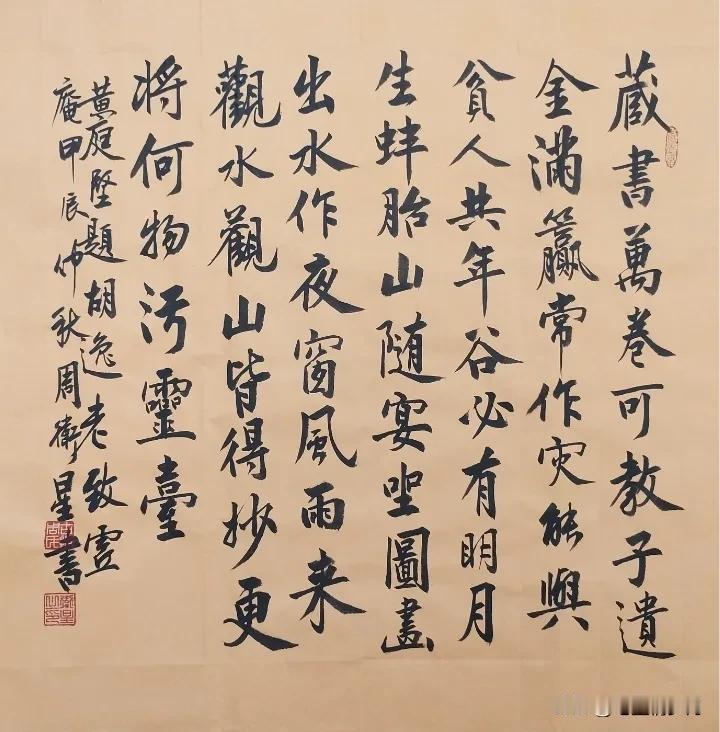 藏書萬卷可教子遺
金滿籯常作灾能與
貧人共年谷必有明月
生蚌胎山随宴坐圖畫
出水作夜窗風雨来
觀水觀山皆得妙更
将何物污靈臺
黄庭堅題胡逸老致虚
庵甲辰仲秋周衛星書